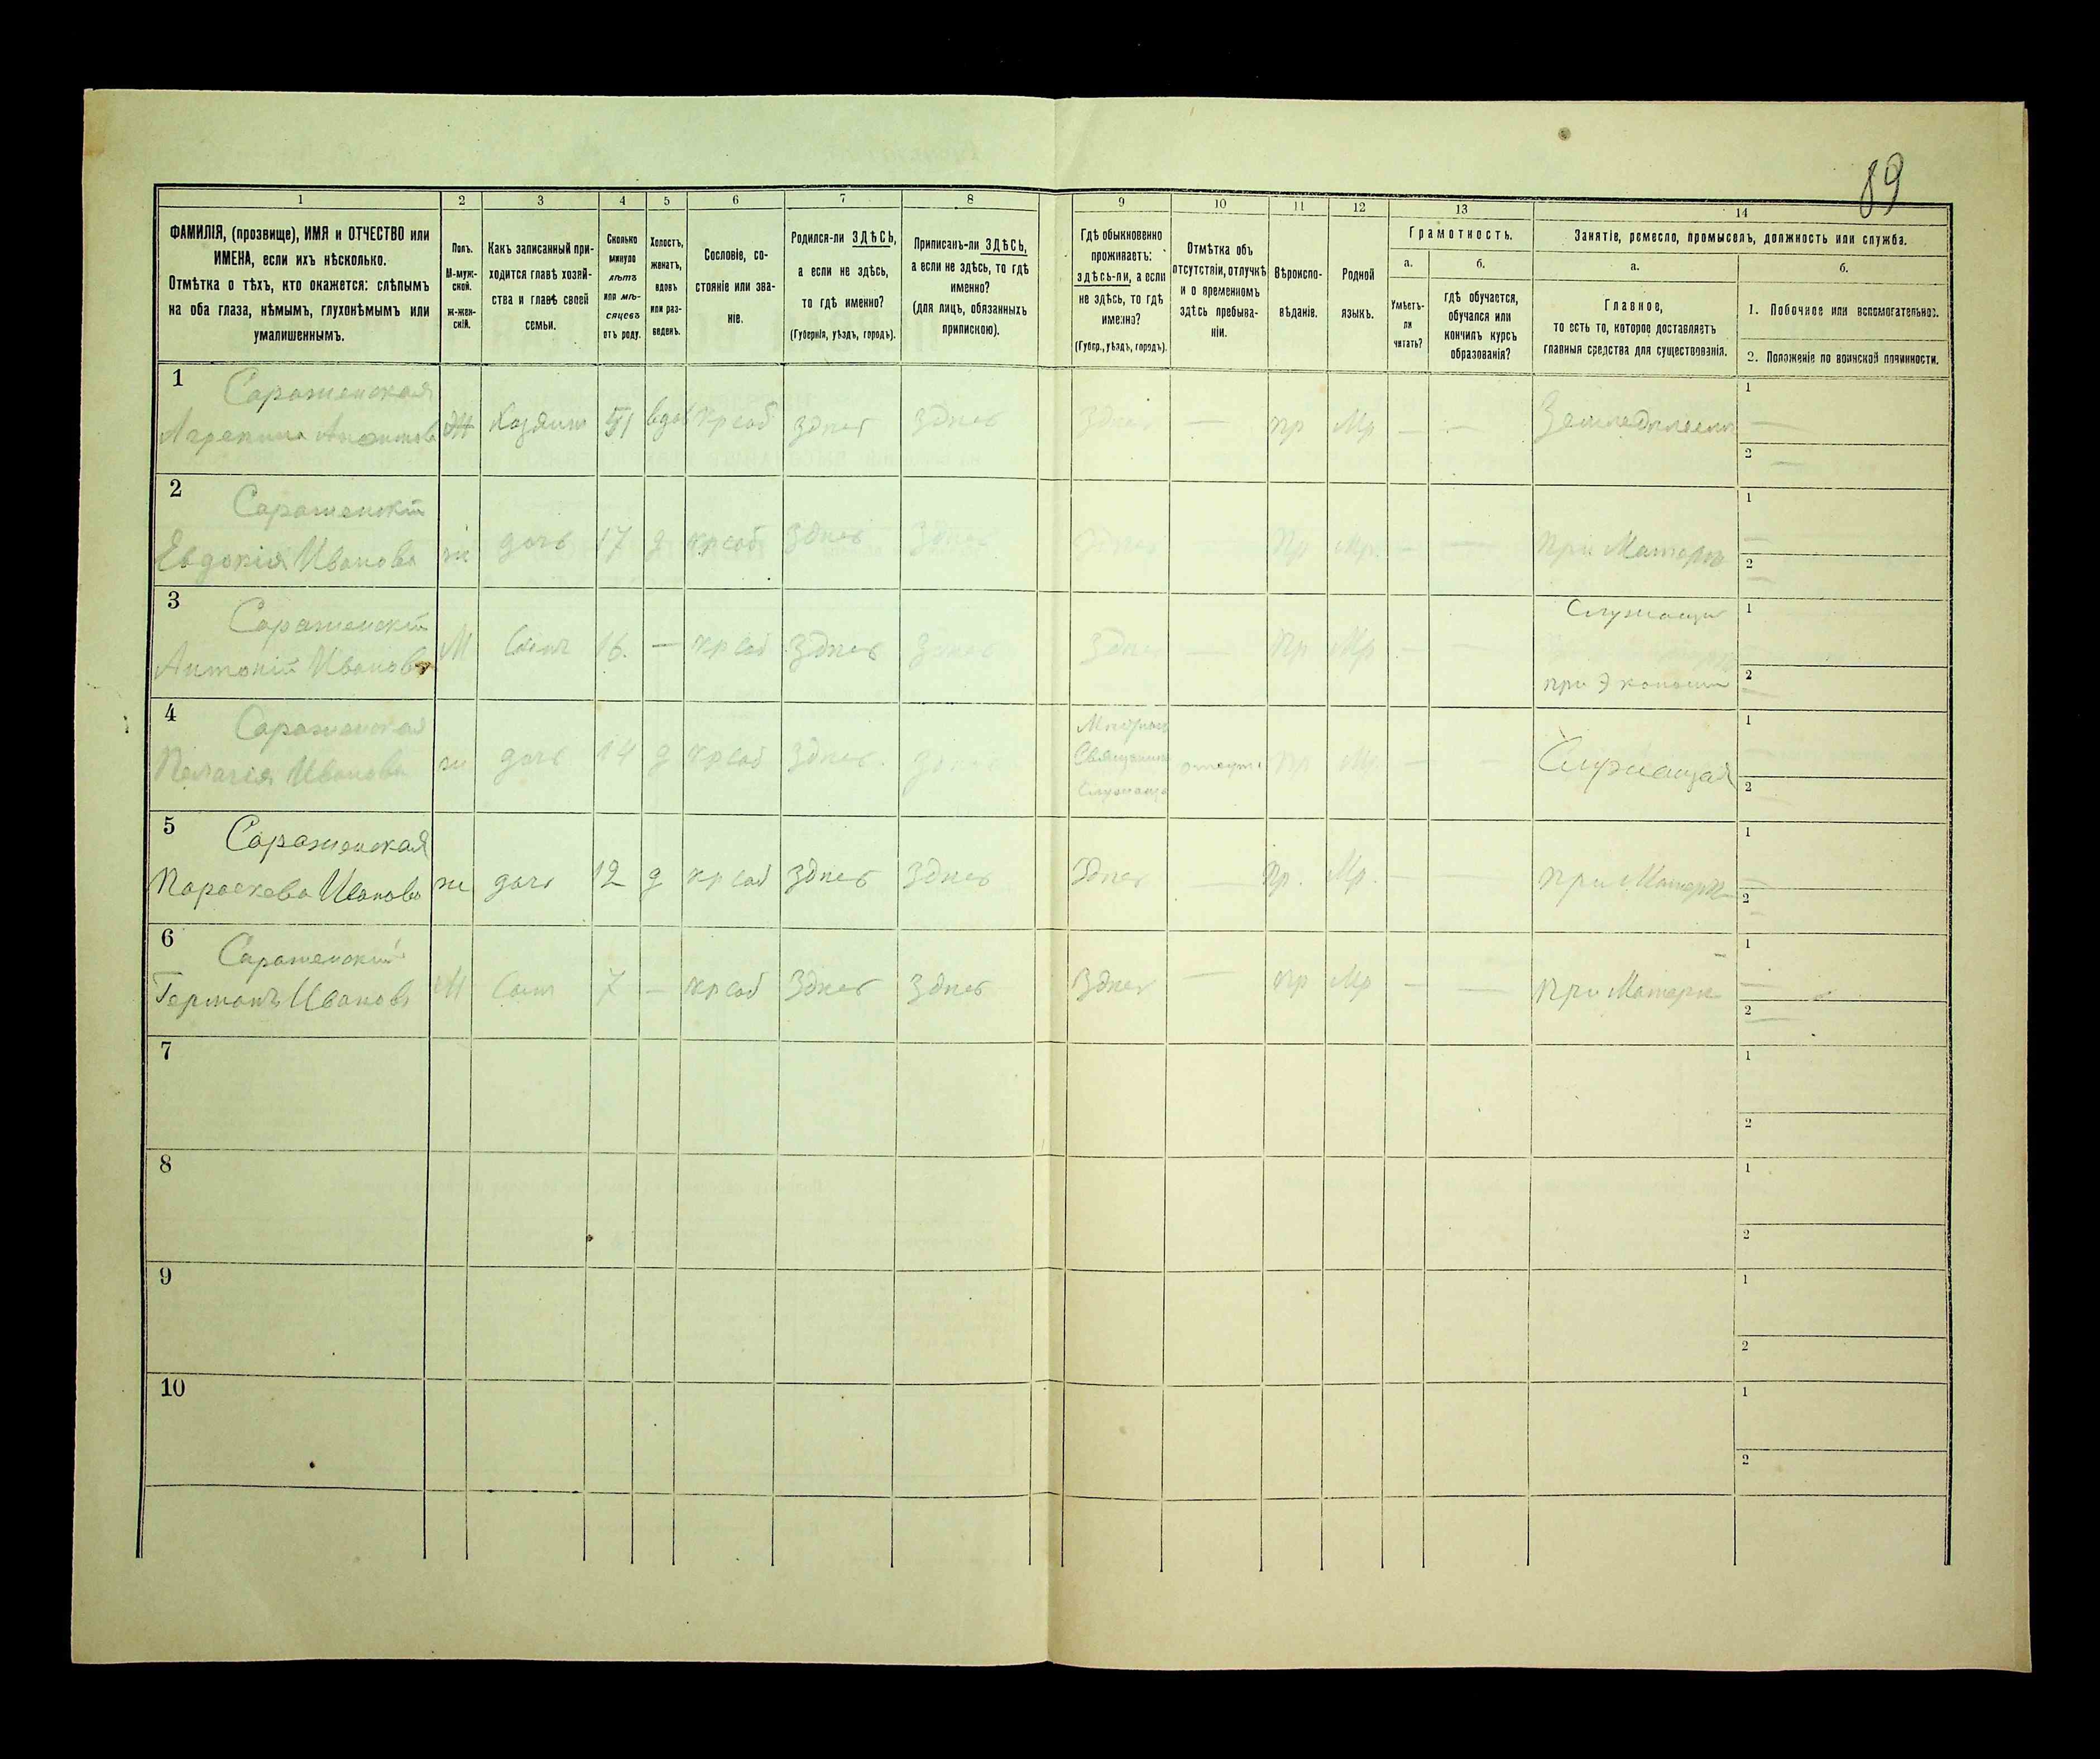 89
1 2 3 4 5 6 7 8 9 10 11 12 13 14
ФАМИЛІЯ, (прозвище), ИМЯ и ОТЧЕСТВО или
ИМЕНА, если ихъ нѣсколько.
Отмѣтка о тѣхъ, кто окажется: слѣпымъ
на оба глаза, нѣмымъ, глухонѣмымъ или
умалишеннымъ.
Полъ.
М-муж-
ской.
ж-жен-
скій.
Какъ записанный при-
ходится главѣ хозяй-
ства и главѣ своей
семьи.
Сколько
минуло
лѣтъ
или мѣ-
сяцевъ
отъ роду.
Холостъ,
женатъ,
вдовъ
или раз-
веденъ.
Сословіе, со-
стояніе или зва-
ніе.
Родился-ли ЗДѢСЬ,
а если не здѣсь,
то гдѣ именно?
(Губернія, уѣздъ, городъ).
Приписанъ-ли ЗДѢСЬ,
а если не здѣсь, то гдѣ
именно?
(для лицъ, обязанныхъ
припискою).
Гдѣ обыкновенно
проживаетъ:
здѣсь-ли, а если
не здѣсь, то гдѣ
именно?
(Губер., уѣздъ, городъ).
Отмѣтка объ
отсутствіи, отлучкѣ
и о временномъ
здѣсь пребыва-
ніи.
Вѣроиспо-
вѣданіе.
Родной
языкъ.
Грамотность.
а.
Умѣетъ-
ли
читать?
б.
гдѣ обучается,
обучался или
кончилъ курсъ
образованія?
Занятіе, ремесло, промыселъ, должность или служба.
а.
Главное,
то есть то, которое доставляетъ
главныя средства для существованія.
б.
1. Побочное или вспомогательное.
2. Положеніе по воинской повинности.
1 Сараженская
Ж 51 кр соб здесь здесь здесь — пр Мр — —
1 —
2 —
2
Евдокія Иванова ж дочь 17 д кр соб здесь здесь здесь — Пр Мр. — — при Матери
1 —
2 —
3 Служащи
Антоній Ивановъ М Сынъ 16. — кр соб здесь здесь здесь — Пр Мр — — при Экономи
1
2 —
4 Сараженская
Пелагея Иванова ж дочь 14 д кр соб здесь здесь пр Мр — — Служащая
1 —
2 —
5 Сараженская
Параскева Иванова ж дочь 12 д кр соб здесь здесь здесь — Пр. Мр. — — при Матери
1 —
2 —
6 Сараженскій
Германъ Ивановъ М Сынъ 7 — кр соб здесь здесь здесь — пр Мр — — при Матери
1 —
2 —
7
1
2
8
1
2
9
1
2
10
1
2